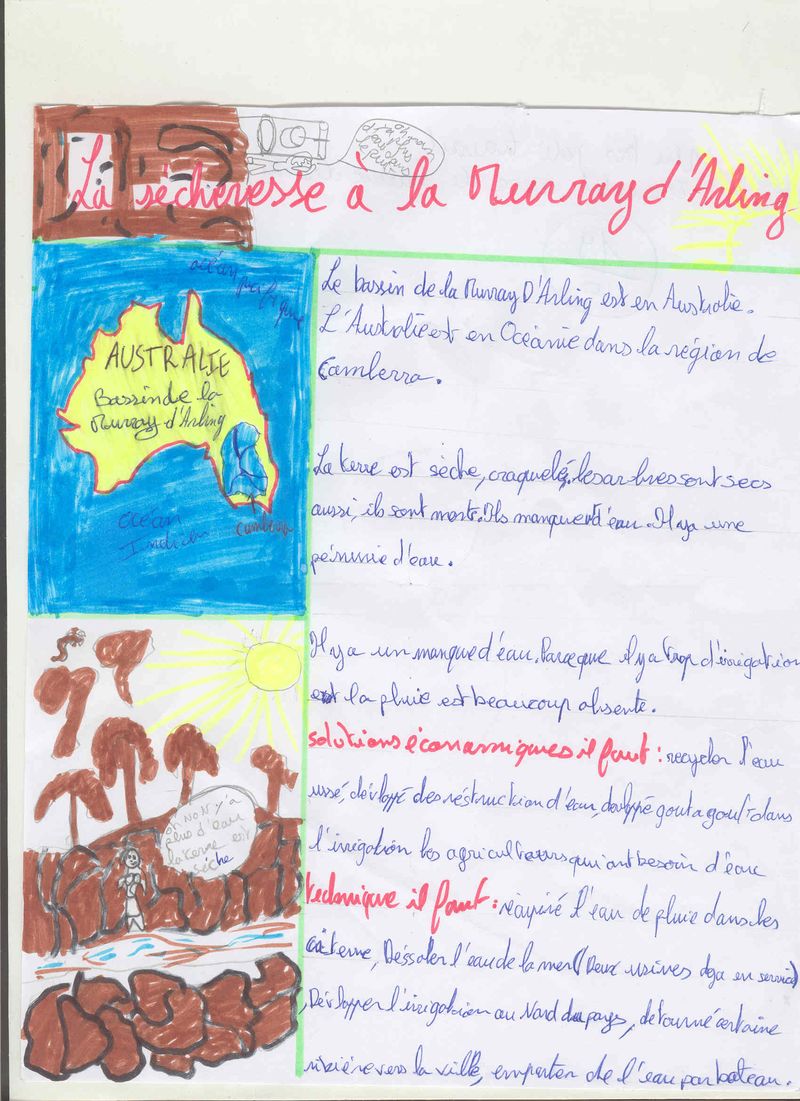 oh non y'a plus d'eau dans le puit
La sécheresse à la Murray d'Arling
océan pacifique
AUSTRALIE
Bassin de la
Murray d'Arling
océan
Indien
Camberra
Le bassin de la Murray D'Arling est en Australie.
L'Australie est en Océanie dans la région de
Camberra.
La terre est sèche, craquelé, les arbres sont secs
aussi, ils sont morts. Ils manquent d'eau. Il y a une
pénurie d'eau.
Il y a un manque d'eau. Parce que il y a trop d'irrigation
et la pluie est beaucoup absente.
solutions économiques il faut : recycler l'eau
ussé, dévloppé des réstruction d'eau, devloppé gout a gout dans
l'irrigation les agriculteurs qui ont besoin d'eau
technique il faut : récupiré l'eau de pluie dans les
citerne, Déssaler l'eau de la mer (Deux usines deja en service)
, Développer l'irrigation au Nord du pays, detourné certaine
rivière vers la ville, emporter de l'eau par bateau.
oh non y'a
plus d'eau
la terre est
sèche